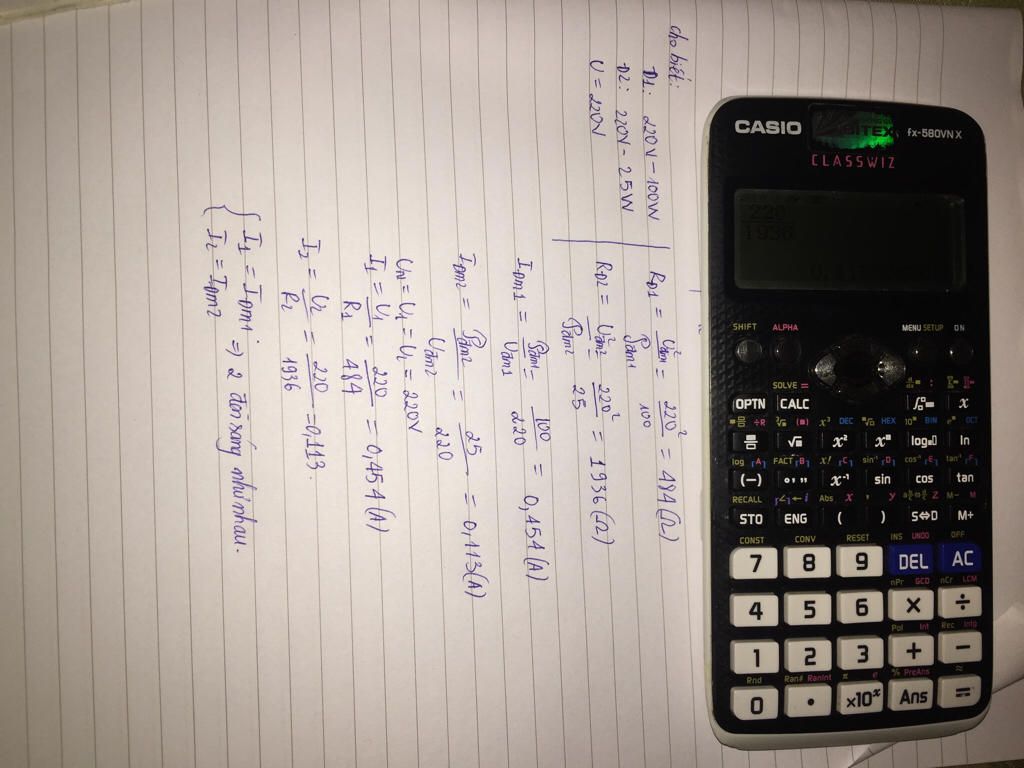 cho biết:
Đ1: 220V - 100W
Đ2: 220V - 25W
U = 220V
RĐ1 = U²đm1 / Pđm1 = 220² / 100 = 484 (Ω)
RĐ2 = U²đm2 / Pđm2 = 220² / 25 = 1936 (Ω)
Iđm1 = Pđm1 / Uđm1 = 100 / 220 = 0,454 (A)
Iđm2 = Pđm2 / Uđm2 = 25 / 220 = 0,113 (A)
= U1 = 220V
I1 = U1 / R1 = 220 / 484 = 0,454 (A)
I2 = U2 / R2 = 220 / 1936 = 0,113.
{ I1 = Iđm1 => 2 đèn sáng như nhau.
I2 = Iđm2
CASIO fx-580VN X
CLASSWIZ
220
1936
SHIFT ALPHA MENU SETUP ON
SOLVE =
OPTN CALC x
÷R x³ DEC HEX BIN OCT
√ x² log ln
log FACT x! sin⁻¹ cos⁻¹ tan⁻¹
(−) x⁻¹ sin cos tan
RECALL Abs x , y Z M− M
STO ENG ( ) S⇔D M+
CONST CONV RESET INS UNDO OFF
7 8 9 DEL AC
nPr GCD nCr LCM
4 5 6 × ÷
Pol Int Rec Intg
1 2 3 + −
Rnd Ran# RanInt π e % PreAns ≈
0 • ×10ˣ Ans =